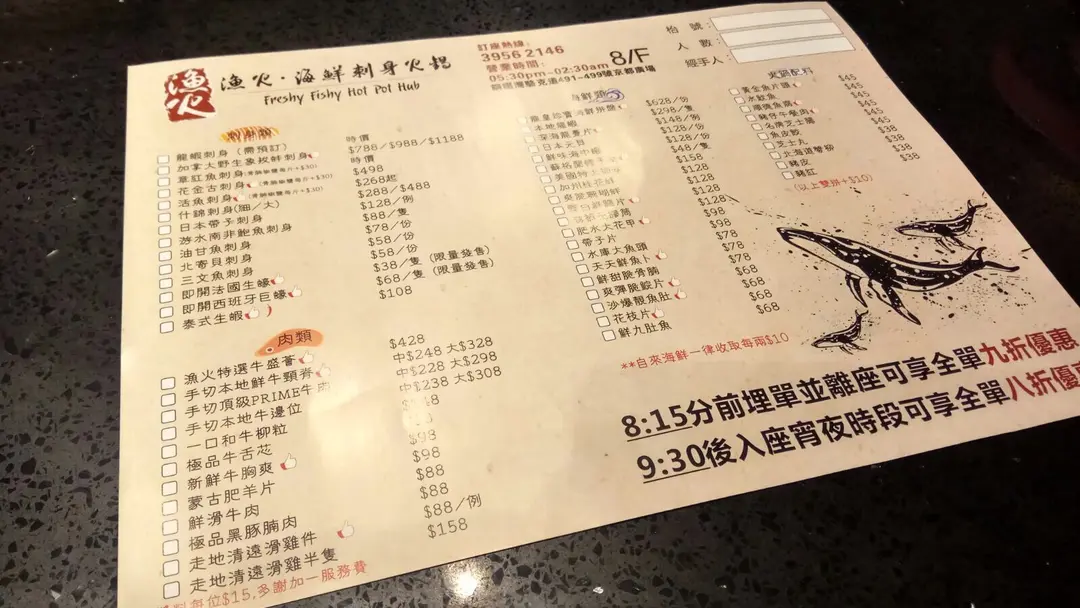 漁火
漁火·海鮮刺身火鍋
Freshy Fishy Hot Pot Hub
訂座熱線:
3956 2146
營業時間:
05:30pm-02:30am
8/F
銅鑼灣駱克道491-499號京都廣場
枱 號:
人 數:
經手人:
刺身類
龍蝦刺身 (需預訂) 時價
加拿大野生象拔蚌刺身 $788/$988/$1188
章紅魚刺身 時價
花金古刺身 $498
活魚刺身 $268起
什錦刺身(細/大) $288/$488
日本帶子刺身 $128/例
游水南非鮑魚刺身 $88/隻
油甘魚刺身 $78/份
北寄貝刺身 $58/份
三文魚刺身 $58/份
即開法國生蠔 $38/隻 (限量發售)
即開西班牙巨蠔 $68/隻 (限量發售)
泰式生蝦 $108
肉類
漁火特選牛盛薈 $428
手切本地鮮牛頸脊 中$248 大$328
手切頂級PRIME牛肉 中$228 大$298
手切本地牛邊位 中$238 大$308
一口和牛柳粒
極品牛舌芯
新鮮牛胸爽 $98
蒙古肥羊片 $98
鮮滑牛肉 $88
極品黑豚腩肉 $88
走地清遠滑雞件 $88/例
走地清遠滑雞半隻 $158
每位$15,多謝加一服務費
海鮮類
$628/份
本地龍蝦 $298/隻
$148/例
日本元貝 $128/份
$128/份
$48/隻
$158
$128
$128
$128
$128
肥水大花甲 $98
帶子片 $98
水庫大魚頭 $78
天天鮮魚卜 $78
鮮甜脆骨腩 $68
爽彈脆鯇片 $68
沙爆靚魚肚 $68
花枝片 $68
鮮九肚魚 $68
**自來海鮮一律收取每兩$10
火鍋配料
黃金魚片頭 $45
水魷魚 $45
$45
豬仔午餐肉 $45
名牌芝士腸 $45
魚皮餃 $38
芝士丸 $38
北海道蟹柳 $38
豬皮 $38
豬紅 $38
(以上雙拼+$10)
8:15分前埋單並離座可享全單九折優惠
9:30後入座宵夜時段可享全單八折優惠